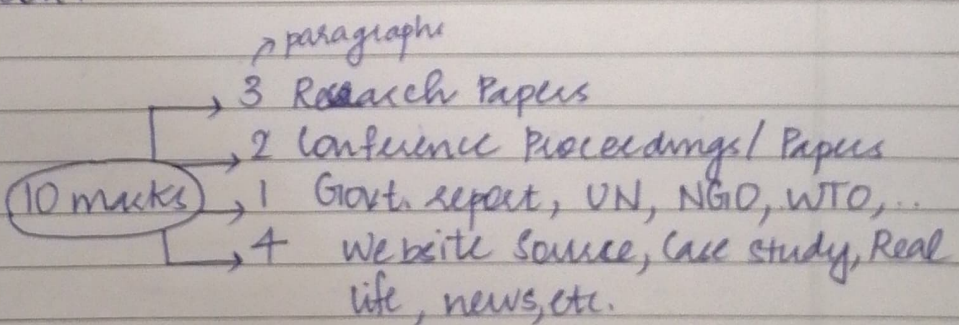 paragraphs
3 Research Papers
2 Conference Proceedings/Papers
10 marks
1 Govt. report, UN, NGO, WTO,..
4 Website Source, Case study, Real
life, news, etc.